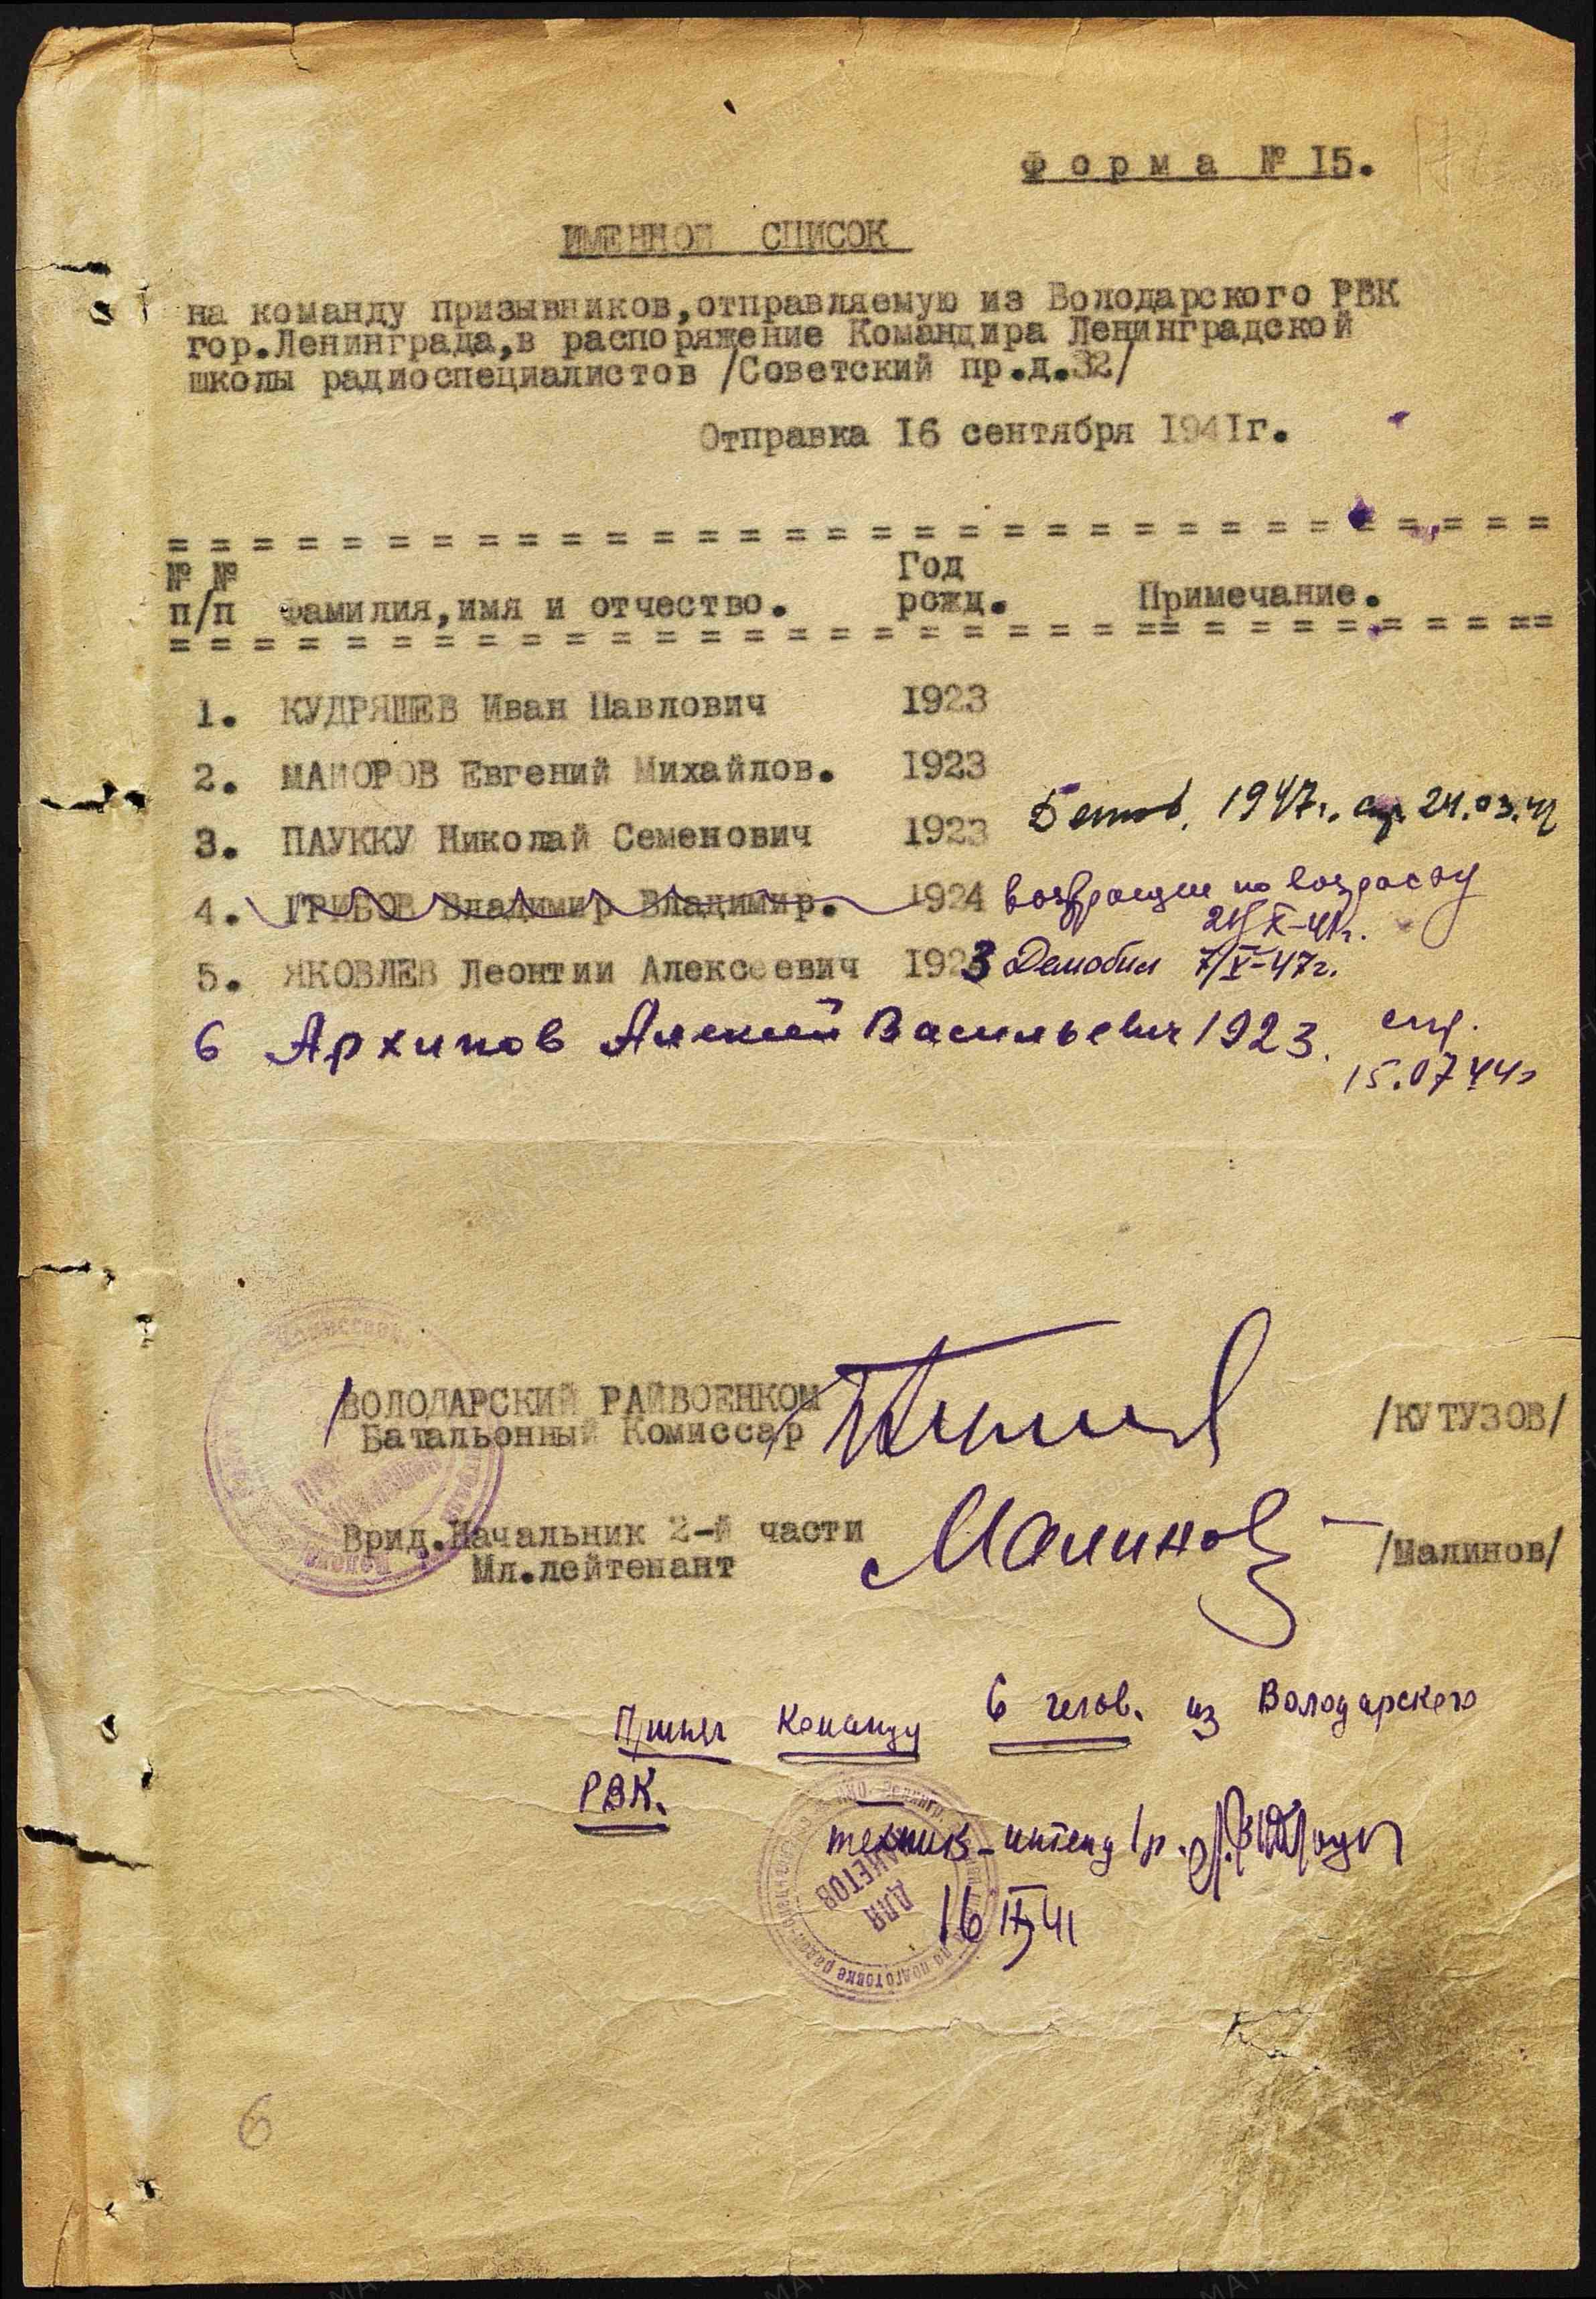 Форма № 15.
ИМЕННОЙ СПИСОК
на команду призывников,отправляемую из Володарского РВК
гор.Ленинграда,в распоряжение Командира Ленинградской
школы радиоспециалистов /Советский пр.д.32/
Отправка 16 сентября 1941г.
№ №
п/п Фамилия,имя и отчество. Год рожд. Примечание.
1. КУДРЯШЕВ Иван Павлович 1923
2. МАИОРОВ Евгений Михайлов. 1923
3. ПАУККУ Николай Семенович 1923 1947г. 24.03.
4. ГРИБОВ Владимир Владимир. 1924 по возрасту
X-41г.
5. ЯКОВЛЕВ Леонтий Алексеевич 1923 Демобил 7/V-47г.
6 Архипов Алексей Васильевич 1923.
15.07 44г
ВОЛОДАРСКИЙ РАЙВОЕНКОМ
Батальонный Комиссар /КУТУЗОВ/
Врид.Начальник 2-й части Малинов /Малинов/
Мл.лейтенант
Принял команду 6 челов. из Володарского
РВК.
техник-интенд 1 р.
16 IX 41
ДЛЯ ПАКЕТОВ
6